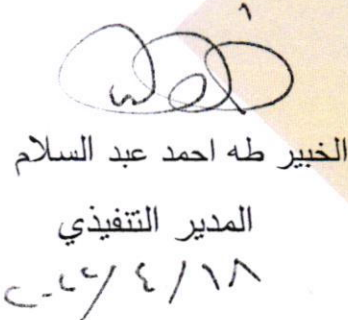 الخبير طه احمد عبد السلام
المدير التنفيذي
٤/١٨